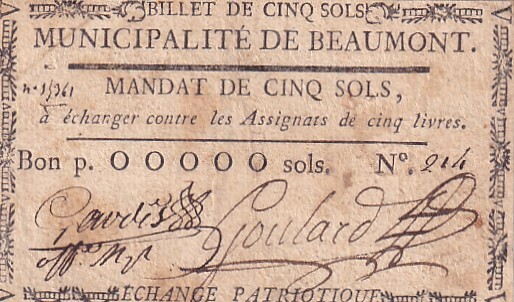 BILLET DE CINQ SOLS
MUNICIPALITÉ DE BEAUMONT.
MANDAT DE CINQ SOLS,
à échanger contre les Assignats de cinq livres.
Bon p. O O O O O sols. N°. 214
Goulard
ÉCHANGE PATRIOTIQUE